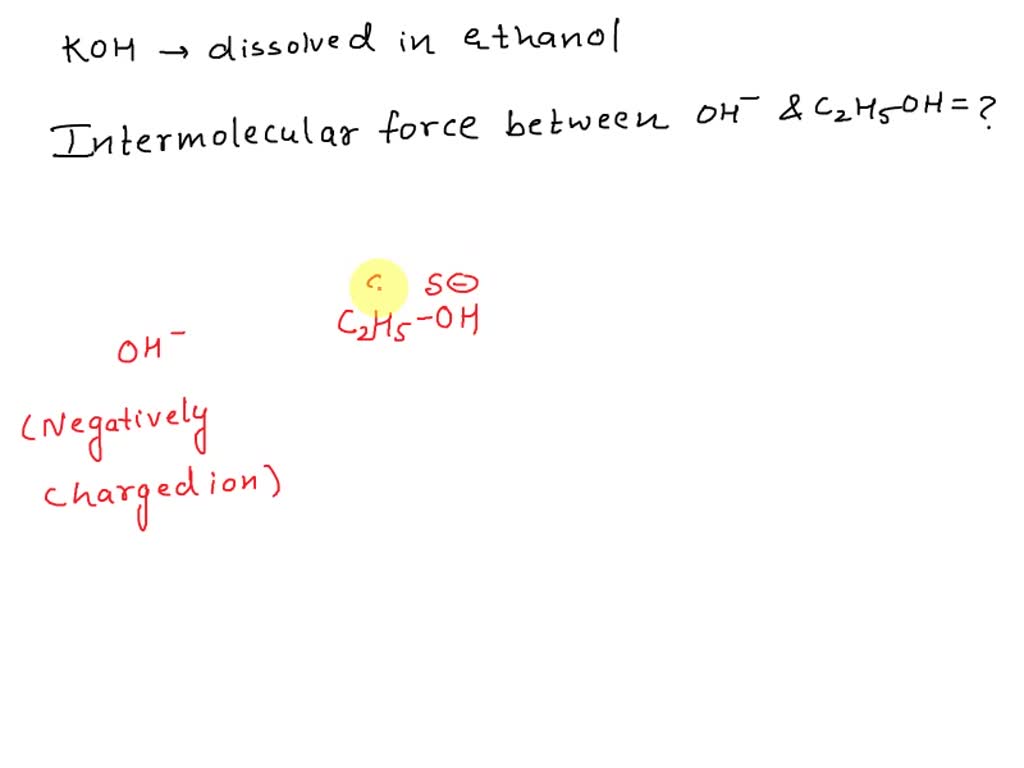 KOH → dissolved in ethanol
Intermolecular force between OH⁻ & C₂H₅OH = ?
S⊖
C₂H₅-OH
OH⁻
(Negatively
charged ion)